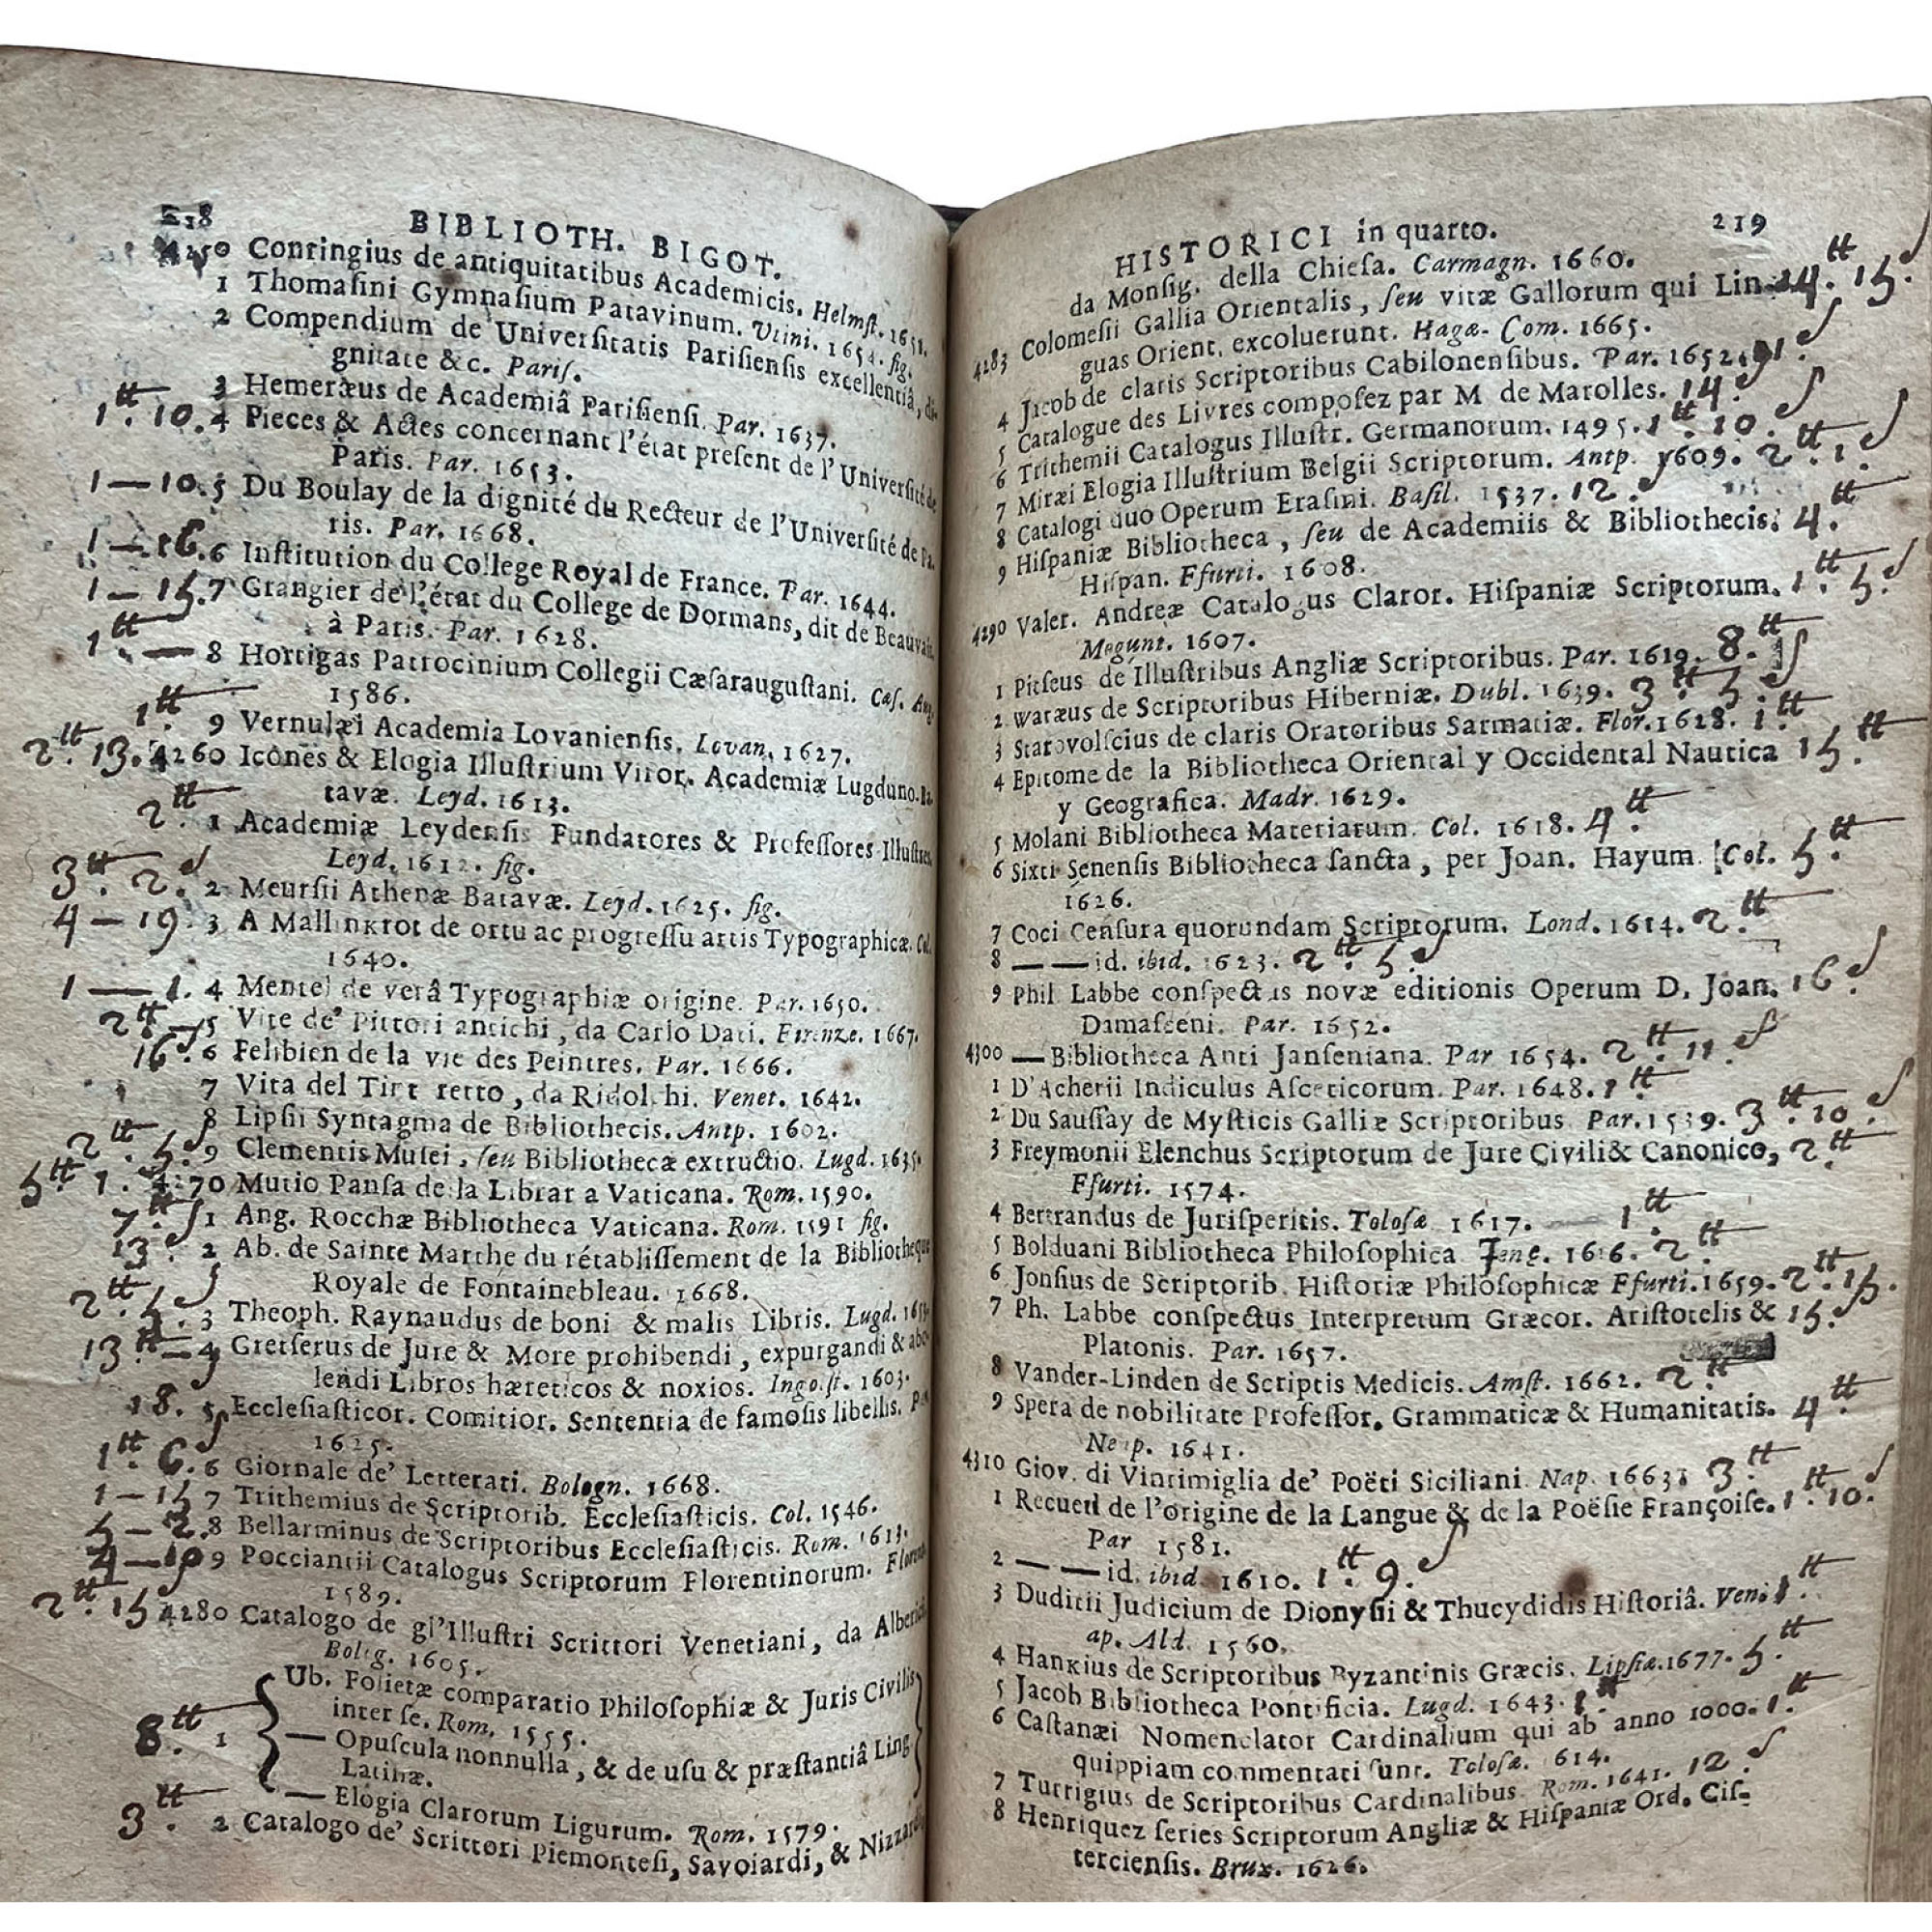 218
BIBLIOTH. BIGOT.
4250 Conringius de antiquitatibus Academicis. Helmst. 1651.
1 Thomasini Gymnasium Patavinum. Utini. 1654. fig.
2 Compendium de Universitatis Parisiensis excellentiâ, di-
gnitate &c. Paris.
3 Hemeræus de Academiâ Parisiensi. Par. 1637.
1tt. 10. 4 Pieces & Actes concernant l'état present de l'Université de
Paris. Par. 1653.
1 — 10. 5 Du Boulay de la dignité du Recteur de l'Université de Pa-
ris. Par. 1668.
1 — 16. 6 Institution du College Royal de France. Par. 1644.
1 — 15. 7 Grangier de l'état du College de Dormans, dit de Beauvais,
à Paris. Par. 1628.
1tt. — 8 Hortigas Patrocinium Collegii Cæsaraugustani. Cæs. Aug.
1586.
1tt. 9 Vernulæi Academia Lovaniensis. Lovan. 1627.
2tt. 13. 4260 Icônes & Elogia Illustrium Viror. Academiæ Lugduno. Ba-
tavæ. Leyd. 1613.
2tt. 1 Academiæ Leydensis Fundatores & Professores Illustres.
Leyd. 1612. fig.
3tt. 2.s 2 Meursii Athenæ Batavæ. Leyd. 1625. fig.
4 — 19. 3 A Mallinkrot de ortu ac progressu artis Typographicæ. Col.
1640.
1 — 1. 4 Mentel de verâ Typographiæ origine. Par. 1650.
2tt. — 5 Vite de' Pittori antichi, da Carlo Dati. Firenze. 1667.
16.s 6 Felibien de la vie des Peintres. Par. 1666.
7 Vita del Tintoretto, da Ridolphi. Venet. 1642.
8 Lipsii Syntagma de Bibliothecis. Antp. 1602.
2tt. 5.s 9 Clementis Musei, seu Bibliothecæ extructio. Lugd. 1635.
5tt. 1. 4270 Mutio Pansa de la Libraria Vaticana. Rom. 1590.
7tt. s 1 Ang. Rocchæ Bibliotheca Vaticana. Rom. 1591 fig.
13. 2 Ab. de Sainte Marthe du rétablissement de la Bibliotheque
Royale de Fontainebleau. 1668.
2tt. 5.s 3 Theoph. Raynaudus de boni & malis Libris. Lugd.
13tt. — 4 Gretserus de Jure & More prohibendi, expurgandi & abo-
lendi Libros hæreticos & noxios. Ingolst. 1603.
18.s 5 Ecclesiasticor. Comitior. Sententia de famosis libellis. Par.
1625.
1tt. 6.s 6 Giornale de' Letterati. Bologn. 1668.
1 — 15 7 Trithemius de Scriptorib. Ecclesiasticis. Col. 1546.
5 — 2. 8 Bellarminus de Scriptoribus Ecclesiasticis. Rom. 1613.
4 — 10 9 Pocciantii Catalogus Scriptorum Florentinorum. Florent.
1589.
2tt. 15 4280 Catalogo de gl'Illustri Scrittori Venetiani, da Alberici.
Bolog. 1605.
Ub. Folietæ comparatio Philosophiæ & Juris Civilis
inter se. Rom. 1555.
8tt. 1 — Opuscula nonnulla, & de usu & præstantiâ Ling
Latinæ.
— Elogia Clarorum Ligurum. Rom. 1579.
3tt. 2 Catalogo de' Scrittori Piemontesi, Savoiardi, & Nizzardi
HISTORICI in quarto. 219
da Monsig. della Chiesa. Carmagn. 1660.
4283 Colomesii Gallia Orientalis, seu vitæ Gallorum qui Lin- 4tt. 15.s
guas Orient. excoluerunt. Hagæ-Com. 1665.
4 Jacob de claris Scriptoribus Cabilonensibus. Par. 1652. 11.s
5 Catalogue des Livres composez par M de Marolles. 14.s
6 Trithemii Catalogus Illustr. Germanorum. 1495. 1tt. 10.s
7 Miræi Elogia Illustrium Belgii Scriptorum. Antp. 1609. 2tt. 1.s
8 Catalogi duo Operum Erasmi. Basil. 1537. 12.s
9 Hispaniæ Bibliotheca, seu de Academiis & Bibliothecis. 4tt.
Hispan. Ffurti. 1608.
4290 Valer. Andreæ Catalogus Claror. Hispaniæ Scriptorum. 1tt. 5.s
Megunt. 1607.
1 Pitseus de Illustribus Angliæ Scriptoribus. Par. 1619. 8.tt
2 Waræus de Scriptoribus Hiberniæ. Dubl. 1639. 3tt. 5.s
3 Starovolscius de claris Oratoribus Sarmatiæ. Flor. 1628. 1.tt
4 Epitome de la Bibliotheca Oriental y Occidental Nautica 15.tt
y Geografica. Madr. 1629.
5 Molani Bibliotheca Materiarum. Col. 1618. 4.tt
6 Sixti Senensis Bibliotheca sancta, per Joan. Hayum. Col. 5.tt
1626.
7 Coci Censura quorundam Scriptorum. Lond. 1614. 2.tt
8 — — id. ibid. 1623. 2tt. 5.s
9 Phil Labbe conspectus novæ editionis Operum D. Joan. 16.s
Damasceni. Par. 1652.
4300 — Bibliotheca Anti Janseniana. Par 1654. 2tt. 11.s
1 D'Acherii Indiculus Asceticorum. Par. 1648. 1.tt
2 Du Saussay de Mysticis Galliæ Scriptoribus Par. 1539. 3tt. 10.s
3 Freymonii Elenchus Scriptorum de Jure Civili & Canonico, 2.tt
Ffurti. 1574.
4 Bertrandus de Jurisperitis. Tolosæ 1617. 1tt.
5 Bolduani Bibliotheca Philosophica Jenę. 1616. 2.tt
6 Jonsius de Scriptorib. Historiæ Philosophicæ Ffurti. 1659. 2tt. 15.
7 Ph. Labbe conspectus Interpretum Græcor. Aristotelis & 15.s
Platonis. Par. 1657.
8 Vander-Linden de Scriptis Medicis. Amst. 1662. 2.tt
9 Spera de nobilitate Professor. Grammaticæ & Humanitatis. 4.tt
Neap. 1641.
4310 Giov. di Vintimiglia de' Poëti Siciliani. Nap. 1663. 3.tt
1 Recueil de l'origine de la Langue & de la Poësie Françoise. 1tt. 10.s
Par 1581.
2 — — id. ibid 1610. 1tt. 9.s
3 Duditii Judicium de Dionysii & Thucydidis Historiâ. Ven. 1.tt
ap. Ald. 1560.
4 Hankius de Scriptoribus Byzantinis Græcis. Lipsiæ. 1677. 5.tt
5 Jacob Bibliotheca Pontificia. Lugd. 1643. 1.tt
6 Castanæi Nomenclator Cardinalium qui ab anno 1000. 1.tt
quippiam commentati sunt. Tolosæ. 1614.
7 Turrigius de Scriptoribus Cardinalibus. Rom. 1641. 12.s
8 Henriquez series Scriptorum Angliæ & Hispaniæ Ord. Cis-
terciensis. Brux. 1626.